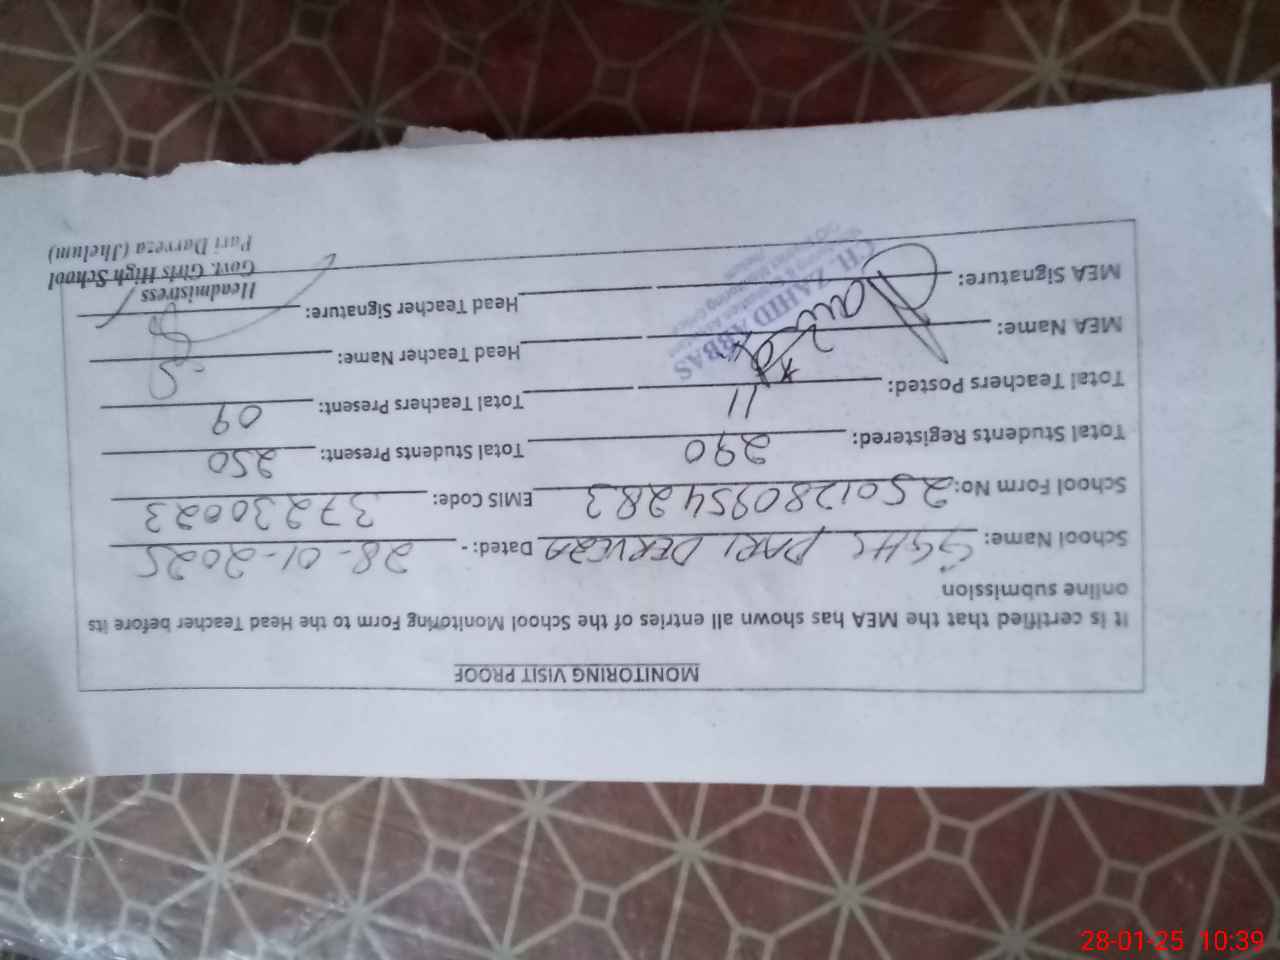 MONITORING VISIT PROOF
It is certified that the MEA has shown all entries of the School Monitoring Form to the Head Teacher before its
online submission
School Name: GGHS PARI DERVEZA Dated: - 28-01-2025
School Form No: 250128095428 3 EMIS Code: 37230023
Total Students Registered: 290 Total Students Present: 250
Total Teachers Posted: 11 Total Teachers Present: 09
MEA Name: Head Teacher Name:
MEA Signature: Head Teacher Signature:
CH. ZAHID ABBAS
Headmistress
Govt. Girls High School
Pari Darveza (Jhelum)
28-01-25 10:39